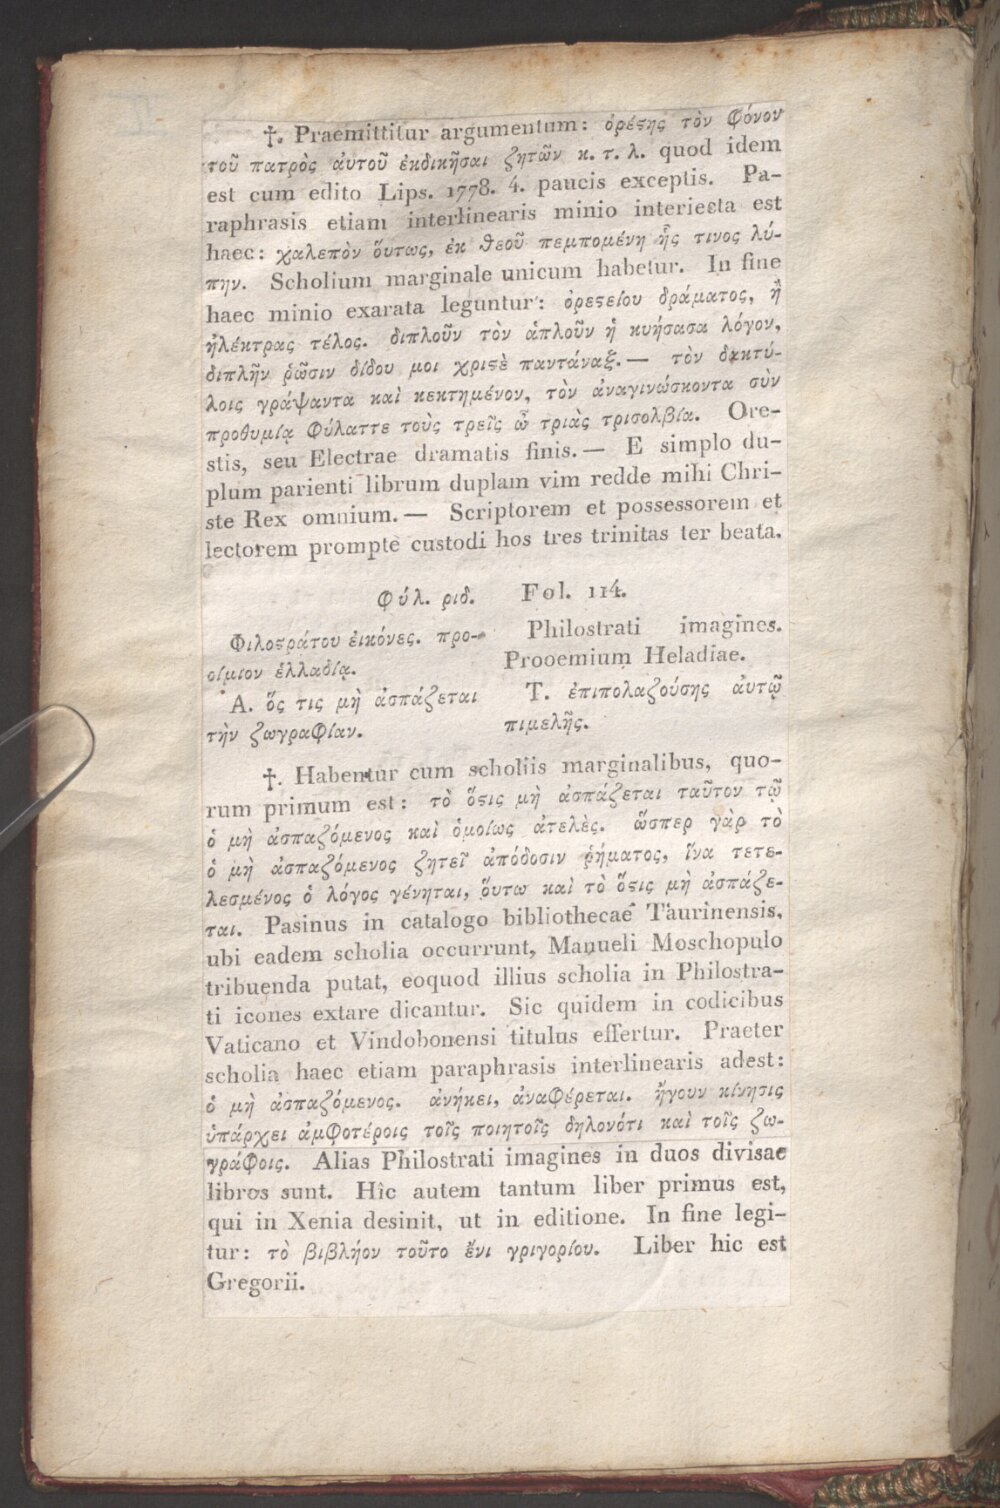 †. Praemittitur argumentum: ὀρέϛης τὸν φόνον
τοῦ πατρὸς ἀυτοῦ ἐκδικῆσαι ζητῶν κ. τ. λ. quod idem
est cum edito Lips. 1778. 4. paucis exceptis. Pa-
raphrasis etiam interlinearis minio interiecta est
haec: χαλεπὸν ὅυτως, ἐκ θεοῦ πεμπομένη ἧς τινος λύ-
πην. Scholium marginale unicum habetur. In fine
haec minio exarata leguntur: ὀρεϛείου δράματος, ἢ
ἠλέκτρας τέλος. διπλοῦν τὸν ἁπλοῦν ἡ κυήσασα λόγον,
διπλῆν ῥῶσιν δίδου μοι χριϛὲ παντάναξ.— τὸν δακτύ-
λοις γράψαντα καὶ κεκτημένον, τὸν ἀναγινώσκοντα σὺν
προθυμίᾳ φύλαττε τοὺς τρεῖς ὦ τριὰς τρισολβία. Ore-
stis, seu Electrae dramatis finis.— E simplo du-
plum parienti librum duplam vim redde mihi Chri-
ste Rex omnium.— Scriptorem et possessorem et
lectorem prompte custodi hos tres trinitas ter beata.
Φύλ. ριδ. Fol. 114.
Φιλοϛράτου ἐικόνες. προ-
οίμιον ἑλλαδίᾳ.
Α. ὅς τις μὴ ἀσπάζεται
τὴν ζωγραφίαν.
Philostrati imagines.
Prooemium Heladiae.
Τ. ἐπιπολαζούσης ἀυτῷ
πιμελῆς.
†. Habentur cum scholiis marginalibus, quo-
rum primum est: τὸ ὅϛις μὴ ἀσπάζεται ταῦτον τῷ
ὁ μὴ ἀσπαζόμενος καὶ ὁμοίως ἀτελὲς. ὥσπερ γὰρ τὸ
ὁ μὴ ἀσπαζόμενος ζητεῖ ἀπόδοσιν ῥήματος, ἵνα τετε-
λεσμένος ὁ λόγος γένηται, ὅυτω καὶ τὸ ὅϛις μὴ ἀσπάζε-
ται. Pasinus in catalogo bibliothecae Taurinensis,
ubi eadem scholia occurrunt, Manueli Moschopulo
tribuenda putat, eoquod illius scholia in Philostra-
ti icones extare dicantur. Sic quidem in codicibus
Vaticano et Vindobonensi titulus effertur. Praeter
scholia haec etiam paraphrasis interlinearis adest:
ὁ μὴ ἀσπαζόμενος. ἀνήκει, ἀναφέρεται. ἤγουν κίνησις
ὑπάρχει ἀμφοτέροις τοῖς ποιητοῖς δηλονότι καὶ τοῖς ζω-
γράφοις. Alias Philostrati imagines in duos divisae
libros sunt. Hic autem tantum liber primus est,
qui in Xenia desinit, ut in editione. In fine legi-
tur: τὸ βιβλήον τοῦτο ἔνι γριγορίου. Liber hic est
Gregorii.